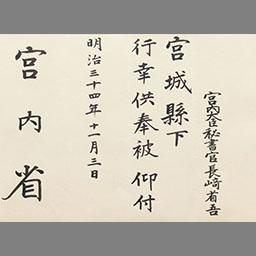 宮内大臣秘書官長﨑省吾
宮城縣下
行幸供奉被仰付
明治三十四年十一月三日
宮内省